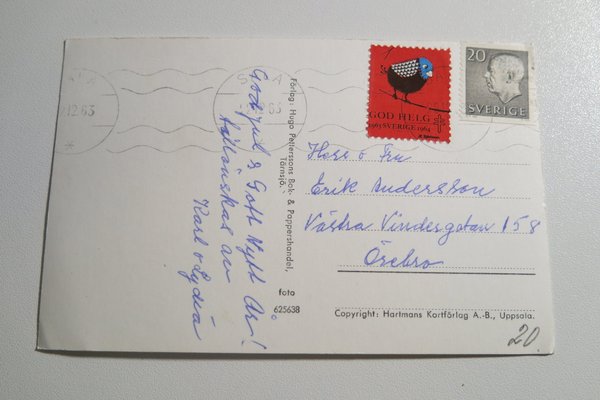 SALA
12.63
God Jul & Gott Nytt År!
tillönskas av
Karl o Lydia
Förlag: Hugo Petterssons Bok- & Pappershandel,
Tärnsjö.
foto
625638
GOD HELG
1963 SVERIGE 1964
20
SVERIGE
Herr o Fru
Erik Andersson
Västra Vindesgatan 158
Örebro
Copyright: Hartmans Kortförlag A.-B., Uppsala.
20.